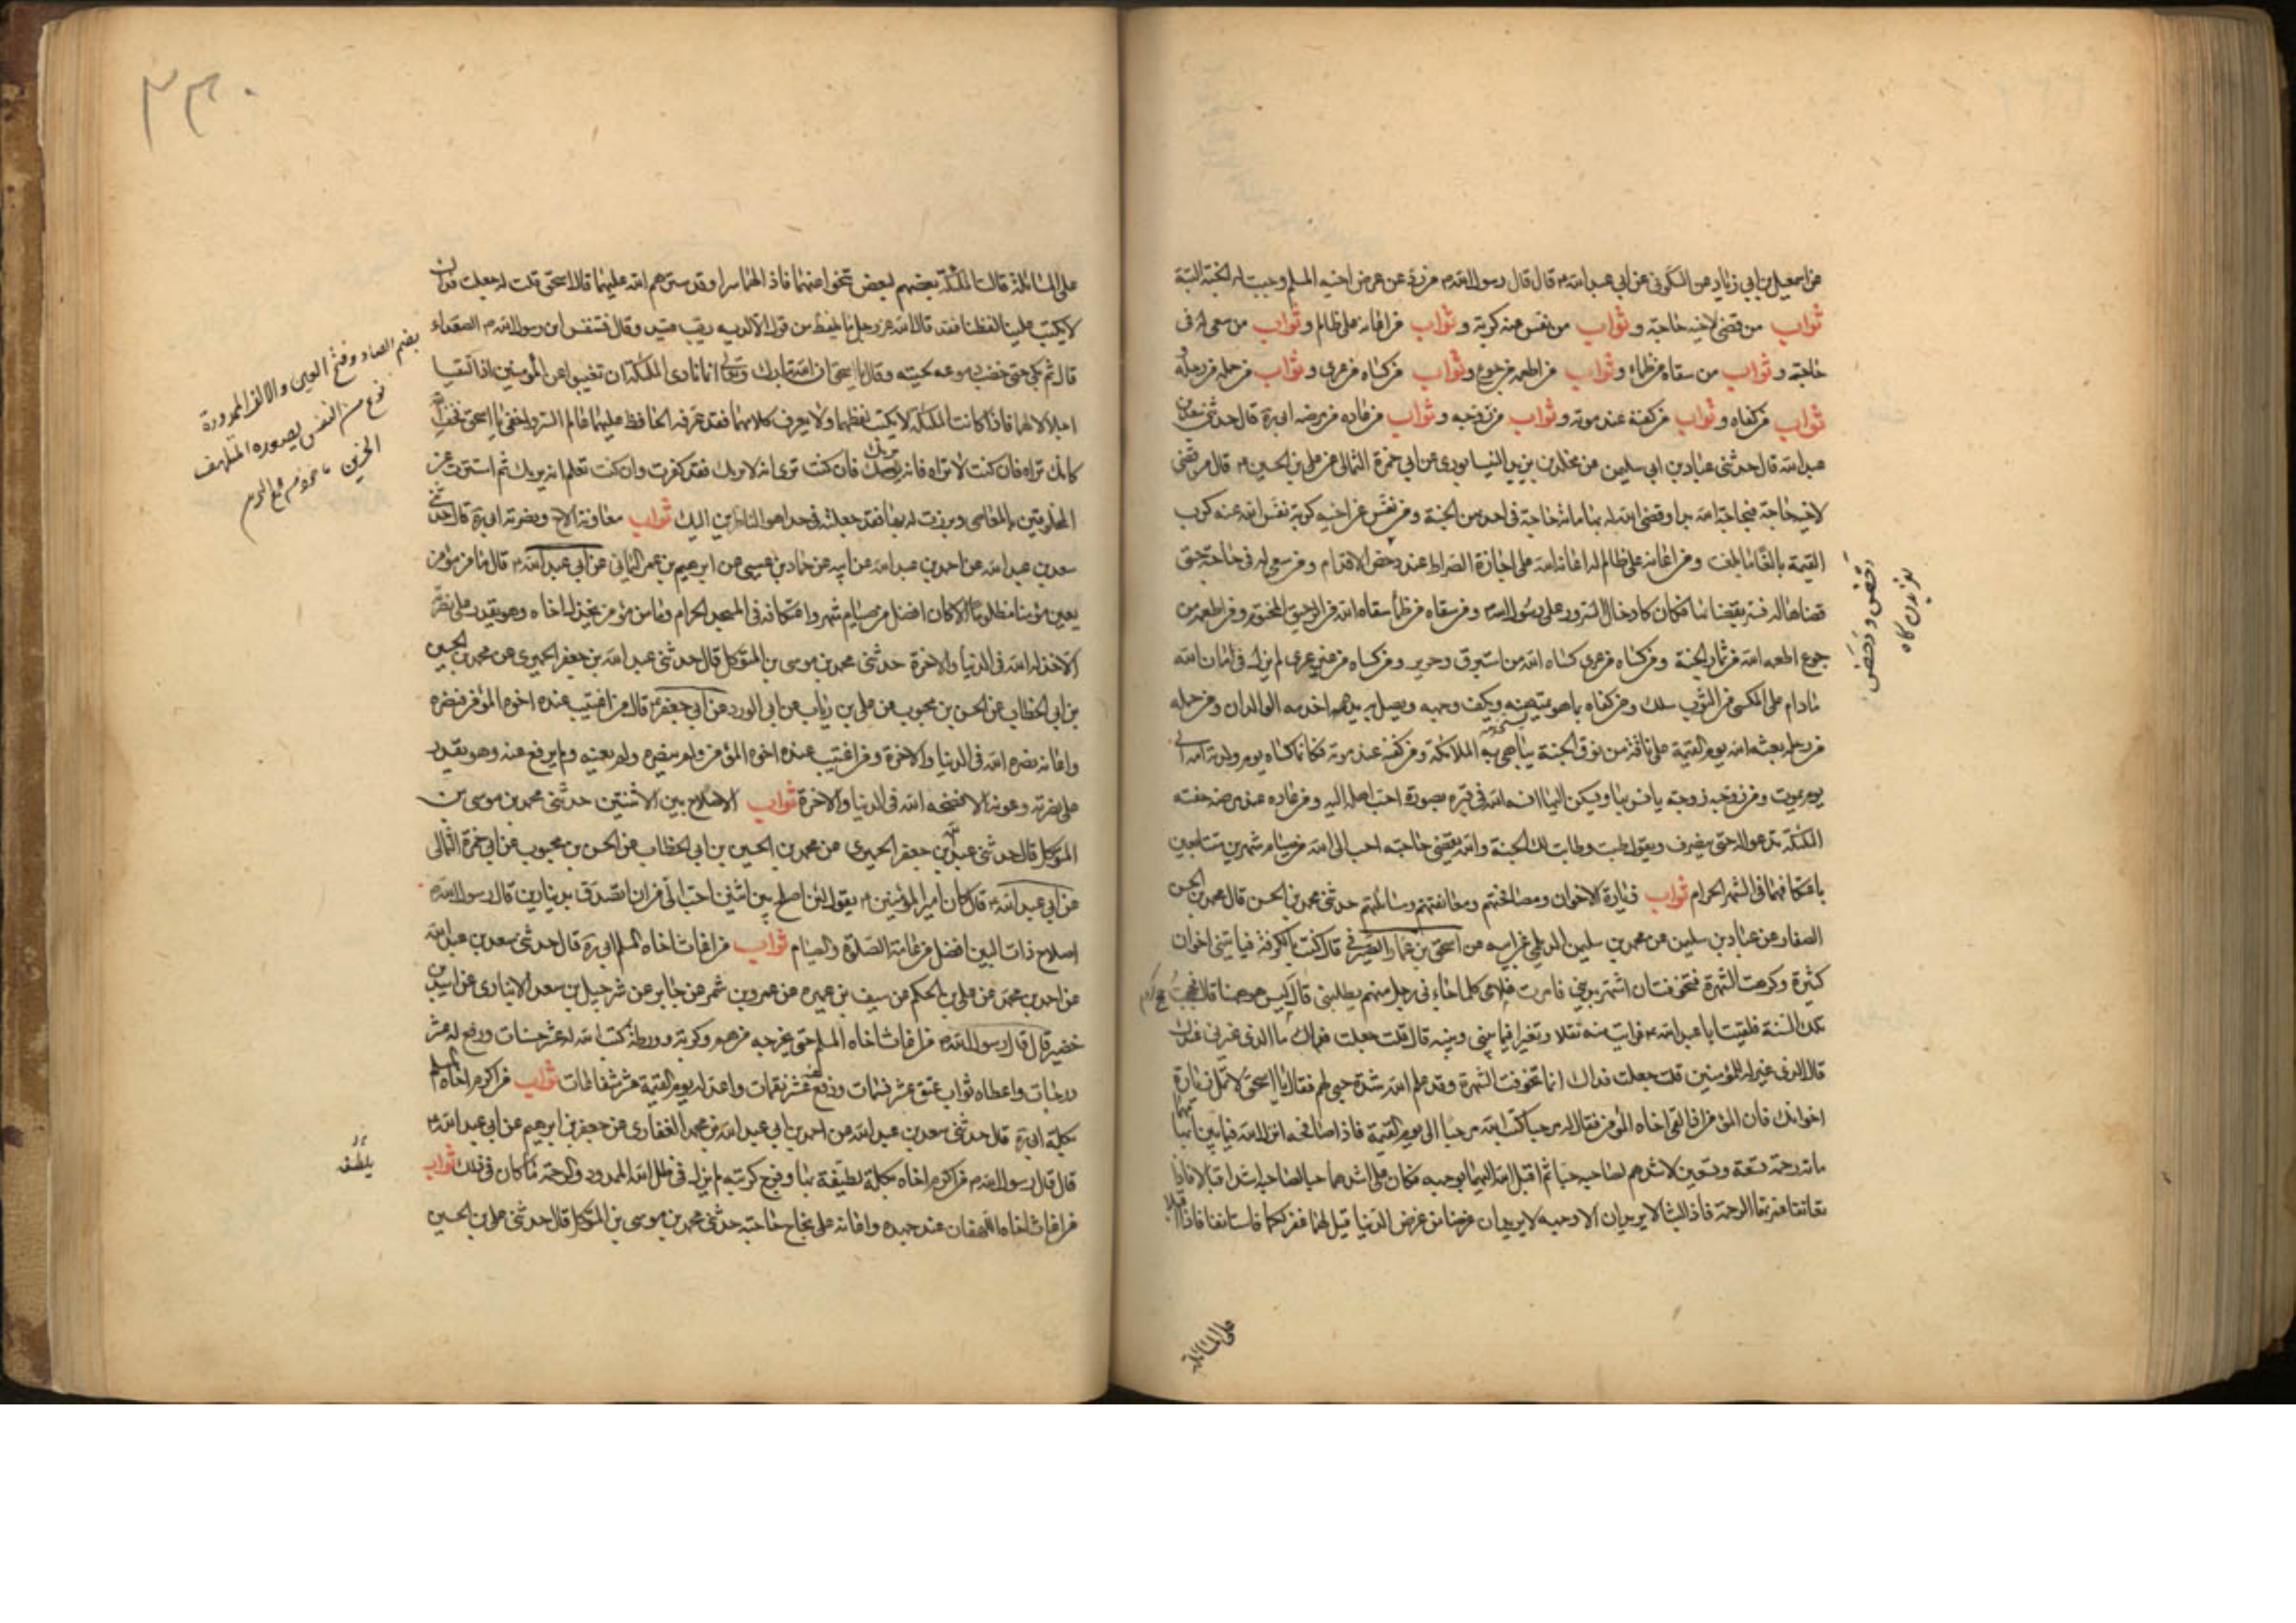 عن اسمعيل بن ابي زياد عن السكوني عن ابي عبد الله ع قال قال رسول الله ص من رد عن عرض اخيه المسلم وجبت له الجنة البتة
ثواب من قضى لاخيه حاجة وثواب من نفس عنه كربة وثواب من اعانه على ظالم وثواب من سعى له في
حاجته وثواب من سقاه من ظماء وثواب من اطعمه من جوع وثواب من كساه من عرى وثواب من حمله من رحله
ثواب من كفاه وثواب من كفنه عند موته وثواب من زوجه وثواب من عاده من مرضه ابي ره قال حدثني سعد بن
عبد الله قال حدثني عباد بن ابي سليمن عن مخلد بن يزيد النيسابوري عن ابي حمزة الثمالي عن علي بن الحسين ع قال من قضى
لاخيه حاجة فبحاجة الله بدا وقضى الله له بها مائة حاجة في احديهن الجنة ومن نفس عن اخيه كربة نفس الله عنه كرب
القيمة بالغا ما بلغت ومن اعانه على ظالم له اعانه الله على اجازة الصراط عند دحض الاقدام ومن سعى له في حاجة حتى
قضاها له فسر بقضائها فكان كادخال السرور على رسول الله ص ومن سقاه من ظمأ سقاه الله من الرحيق المختوم ومن اطعمه من
جوع اطعمه الله من ثمار الجنة ومن كساه من عرى كساه الله من استبرق وحرير ومن كساه من غير عرى لم يزل في امان الله
مادام على المكسى من الثوب سلك ومن كفاه بما هو يمتهنه ويكف وجهه ويصل به يديه اخدمه الولدان ومن حمله
من رحله بعثه الله يوم القيمة على ناقة من نوق الجنة يباهي به الملائكة ومن كفنه عند موته فكانما كساه يوم ولدته امه الى
يوم يموت ومن زوجه زوجة يانس بها ويسكن اليها انسه الله في قبره بصورة احب اهله اليه ومن عاده عند مرضه حفته
الملئكة تدعو له حتى ينصرف ويقول طبت وطابت لك الجنة والله لقضى حاجته احب الى الله من صيام شهرين متتابعين
باعتكافهما في الشهر الحرام ثواب زيارة الاخوان ومصافحتهم ومعانقتهم ومسائلتهم حدثني محمد بن الحسن قال محمد بن الحسن
الصفار عن عباد بن سليمن عن محمد بن سليمن الديلمي عن ابيه عن اسحق بن عمار الصيرفي قال كنت بالكوفة فياتيني اخوان
كثيرة وكرهت الشهرة فتخوفت ان اشتهر بديني فامرت غلامي كلما جاءني رجل منهم يطلبني قال ليس هو هيهنا قال فحججت
تلك السنة فلقيت ابا عبد الله ع فرايت منه ثقلا وتغيرا فيما بيني وبينه قال قلت جعلت فداك ما الذي غيرني عندك
قال الذي غيرك للمؤمنين قلت جعلت فداك انما تخوفت الشهرة وقد علم الله شدة حبي لهم فقال يا اسحق لا تمل زيارة
اخوانك فان المؤمن اذا لقى اخاه المؤمن فقال له مرحبا كتب الله مرحبا الى يوم القيمة فاذا صافحه انزل الله فيما بين ابهامهما
مائة رحمة تسعة وتسعين لاشدهم لصاحبه حبا ثم اقبل الله اليهما بوجهه فكان على اشدهما حبا لصاحبه اشد اقبالا فاذا
تعانقا غمرتهما الرحمة فاذا لبثا لا يريدان الا وجهه لا يريدان غرضا من غرض الدنيا قيل لهما غفر لكما فاستانفا فاذا اقبلا
دحض و دحض
لغزيدن گاه
على المسائلة
٢٣٠
على المسائلة قالت الملئكة بعضهم لبعض تنحوا عنهما فان لهما سرا وقد ستر الله عليهما قال اسحق قلت له جعلت فداك
لا يكتب علينا لفظنا فقد قال الله عز وجل ما يلفظ من قول الا لديه رقيب عتيد وقال فتنفس ابن رسول الله ص الصعداء
قال ثم بكى حتى خضبت دموعه لحيته وقال يا اسحق ان الله تبارك وتعالى انما نادى الملئكة ان تغيبوا عن المؤمنين اذا التقيا
اجلالا لهما فاذا كانت الملئكة لا يكتب لفظهما ولا يعرف كلامهما فقد عرفه الحافظ عليهما عالم السر واخفى يا اسحق فخف الله
كانك تراه فان كنت لا تراه فانه يريك فان كنت ترى انه لا يريك فقد كفرت وان كنت تعلم انه يريك ثم استترت عن
المخلوقين بالمعاصي وبرزت له بها فقد جعلته في حد اهون الناظرين اليك ثواب معاونة الاخ ونصرته ابي ره قال حدثني
سعد بن عبد الله عن احمد بن عبد الله عن ابيه عن حماد بن عيسى عن ابرهيم بن عمر اليماني عن ابي عبد الله ع قال ما من مؤمن
يعين مؤمنا مظلوما الا كان افضل من صيام شهر واعتكافه في المسجد الحرام وما من مؤمن يخذل اخاه وهو يقدر على نصرته
الا خذله الله في الدنيا والاخرة حدثني محمد بن موسى بن المتوكل قال حدثني عبد الله بن جعفر الحميري عن محمد بن الحسين
بن ابي الخطاب عن الحسن بن محبوب عن علي بن رياب عن ابي الورد عن ابي جعفر ع قال من اغتيب عنده اخوه المؤمن فنصره
واعانه نصره الله في الدنيا والاخرة ومن اغتيب عنده اخوه المؤمن ولم ينصره ولم يعنه ولم يرفع عنه وهو يقدر
على نصرته وعونه الا فضحه الله في الدنيا والاخرة ثواب الاصلاح بين الاثنين حدثني محمد بن موسى بن
المتوكل قال حدثني عبد الله بن جعفر الحميري عن محمد بن الحسين بن ابي الخطاب عن الحسن بن محبوب عن ابي حمزة الثمالي
عن ابي عبد الله ع قال كان امير المؤمنين ع يقول لئن اصلح بين اثنين احب الي من ان اتصدق بدينارين قال رسول الله ص
اصلاح ذات البين افضل من عامة الصلوة والصيام ثواب من اغاث اخاه المسلم ابي ره قال حدثني سعد بن عبد الله
عن احمد بن محمد عن علي بن الحكم عن سيف بن عميرة عن عمرو بن شمر عن جابر عن شرحبيل بن سعد الانباري عن اسيد بن
خضير قال قال رسول الله ص من اغاث اخاه المسلم حتى يخرجه من هم وكربة وورطة كتب الله له عشر حسنات ورفع له عشر
درجات واعطاه ثواب عتق عشر نسمات ودفع عنه عشر نقمات واعد له يوم القيمة عشر شفاعات ثواب من اكرم اخاه المسلم
بكلمة ابي ره قال حدثني سعد بن عبد الله عن احمد بن ابي عبد الله عن محمد الغفاري عن جعفر بن ابرهيم عن ابي عبد الله ع
قال قال رسول الله ص من اكرم اخاه بكلمة لطيفة بها وفرج كربته لم يزل في ظل الله الممدود والرحمة ما كان في ذلك ثواب
من اغاث اخاه اللهفان عند جهده واعانه على نجاح حاجته حدثني محمد بن موسى بن المتوكل قال حدثني علي بن الحسين
بضم الصاد وفتح العين والالف الممدودة
نوع من النفس يصدره المتلهف
الحزين
يلطفه